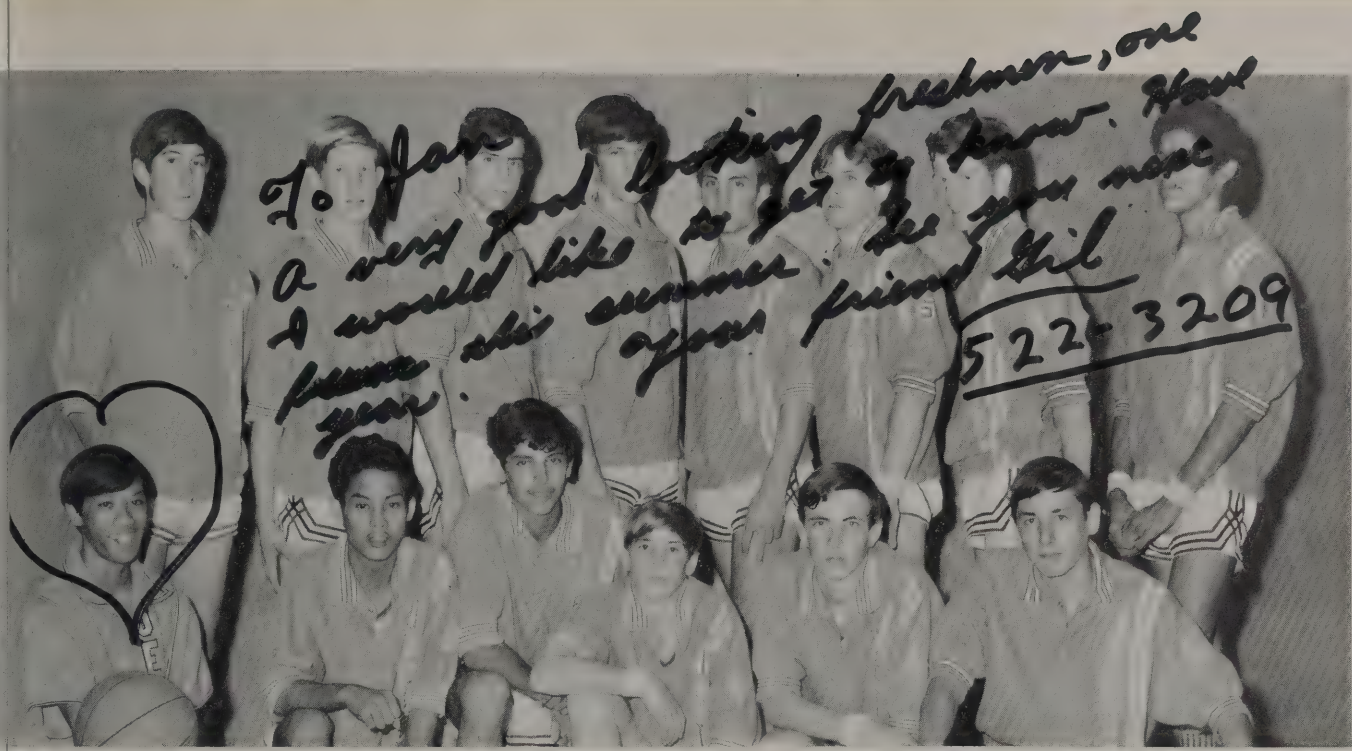 To Jan
A very good looking freshmen, one
I would like to get to know. Have
this summer. See you next
year. Your friend Gil
522-3209